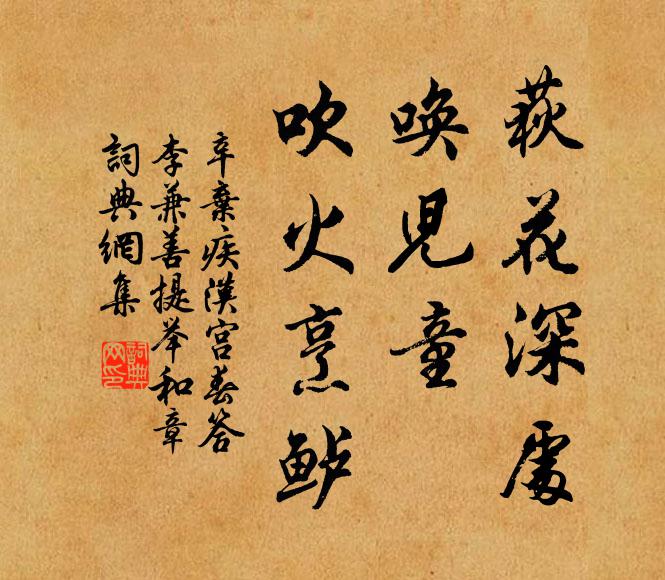 荻花深處
喚兒童
吹火烹鲈
辛棄疾漢宮春答
李兼善提举和章
詞典網集
詞典網印